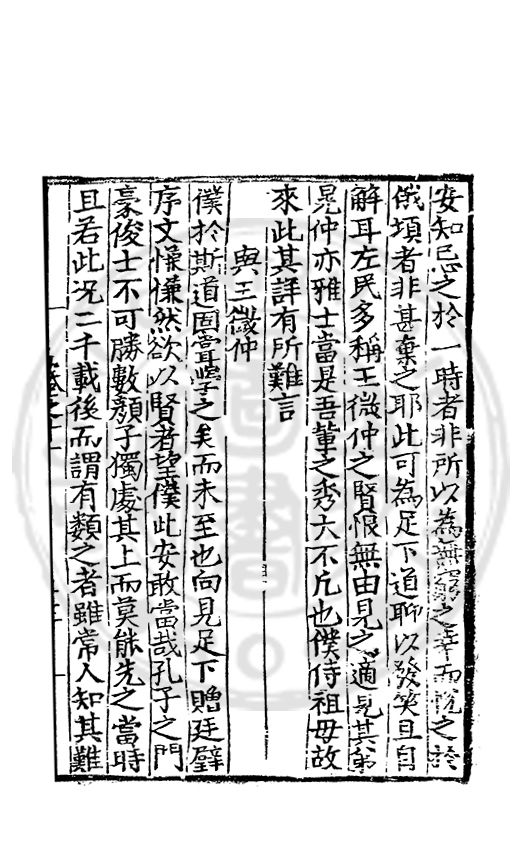 安知已之於一時者非所以為無窮之幸而悅之於
俄頃者非甚棄之耶此可為足下道聊以發笑且自
解耳左民多稱王微仲之賢恨無由見之適見其弟
晃仲亦雅士當是吾董之秀大不凡也僕侍祖母故
來此其詳有所難言
與王微仲
僕於斯道固嘗學之矣而未至也向見足下贈廷璧
序文慊慊然欲以賢者望僕此安敢當哉孔子之門
豪俊士不可勝數顏子獨處其上而莫能先之當時
且若此况二千載後而謂有類之者雖常人知其難